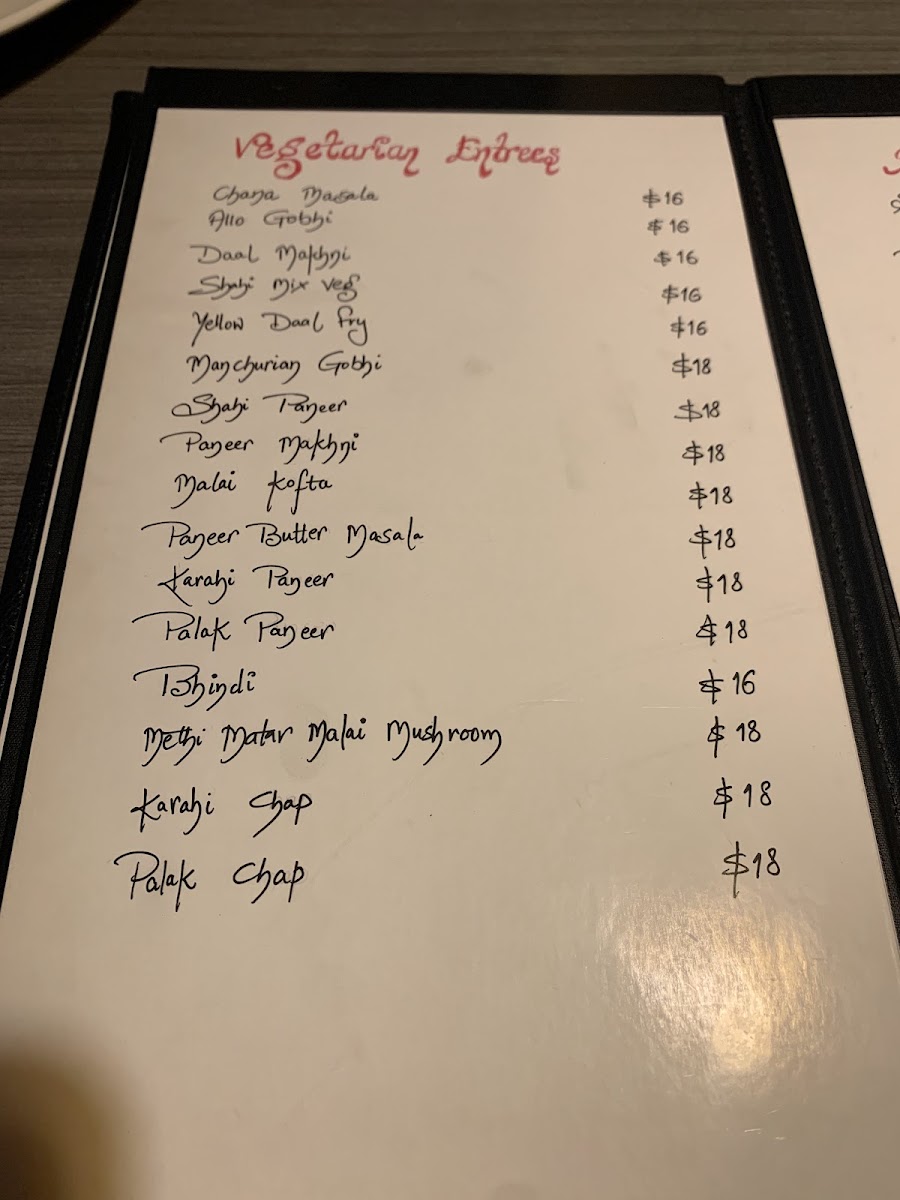 Vegetarian Entrees
Chana Masala $16
Allo Gobhi $16
Daal Makhni $16
Shahi Mix Veg $16
Yellow Daal Fry $16
Manchurian Gobhi $18
Shahi Paneer $18
Paneer Makhni $18
Malai Kofta $18
Paneer Butter Masala $18
Karahi Paneer $18
Palak Paneer $18
Bhindi $16
Methi Matar Malai Mushroom $18
Karahi Chap $18
Palak Chap $18